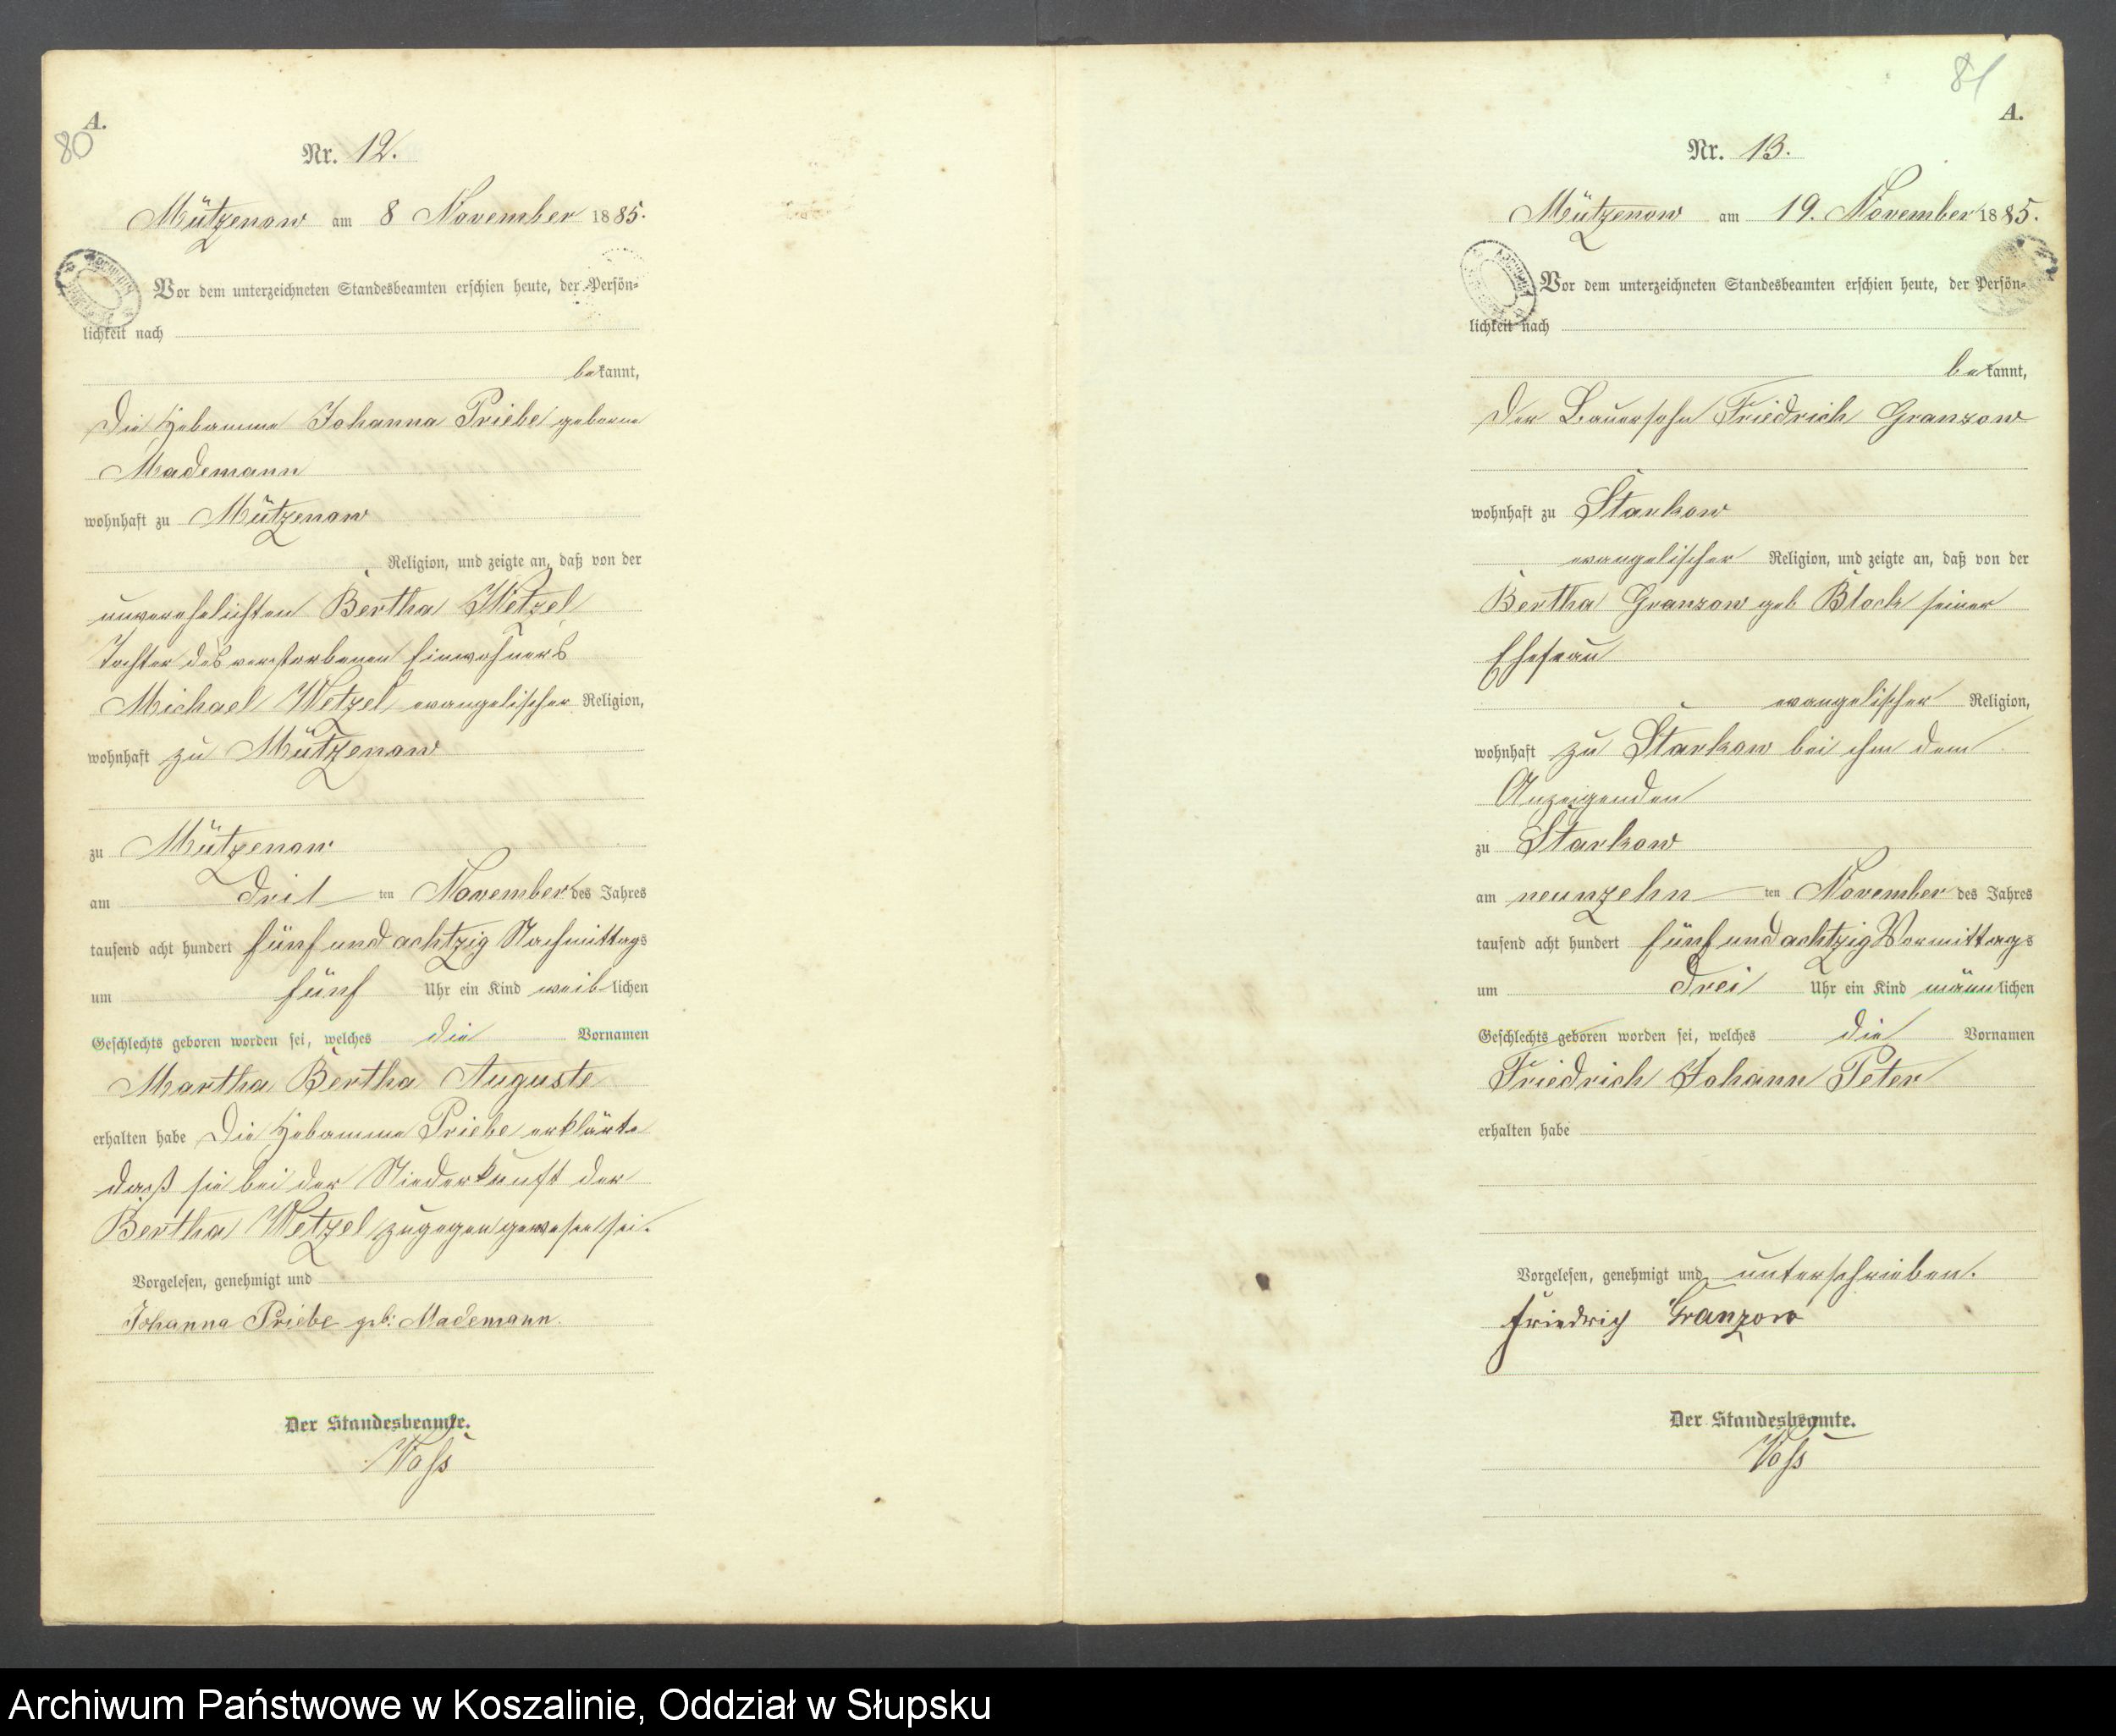 80
A.
Nr. 12.
Mützenow am 8 November 1885.
Vor dem unterzeichneten Standesbeamten erschien heute, der Persön-
lichkeit nach
bekannt,
die Hebamme Johanna Priebe geborne
Mademann
wohnhaft zu Mützenow
Religion, und zeigte an, daß von der
unverehelichten Bertha Wetzel
Tochter des verstorbenen Einwohners
Michael Wetzel, evangelischer Religion,
wohnhaft zu Mützenow
zu Mützenow
am drit ten November des Jahres
tausend acht hundert fünf und achtzig Nachmittags
um fünf Uhr ein Kind weiblichen
Geschlechts geboren worden sei, welches die Vornamen
Martha Bertha Auguste
erhalten habe Die Hebamme Priebe erklärte
daß sie bei der Niederkunft der
Bertha Wetzel zugegen gewesen sei.
Vorgelesen, genehmigt und
Johanna Priebe geb: Mademann.
Der Standesbeamte.
Voss
81
A.
Nr. 13.
Mützenow am 19. November 1885.
Vor dem unterzeichneten Standesbeamten erschien heute, der Persön-
lichkeit nach
bekannt,
der Bauersohn Friedrich Granzow
wohnhaft zu Starkow
evangelischer Religion, und zeigte an, daß von der
Bertha Granzow geb Block seiner
Ehefrau
evangelischer Religion,
wohnhaft zu Starkow bei ihm dem
Anzeigenden
zu Starkow
am neunzehn ten November des Jahres
tausend acht hundert fünf und achtzig Vormittags
um drei Uhr ein Kind männlichen
Geschlechts geboren worden sei, welches die Vornamen
Friedrich Johann Peter
erhalten habe
Vorgelesen, genehmigt und unterschrieben.
Friedrich Granzow
Der Standesbeamte.
Voss
Archiwum Państwowe w Koszalinie, Oddział w Słupsku